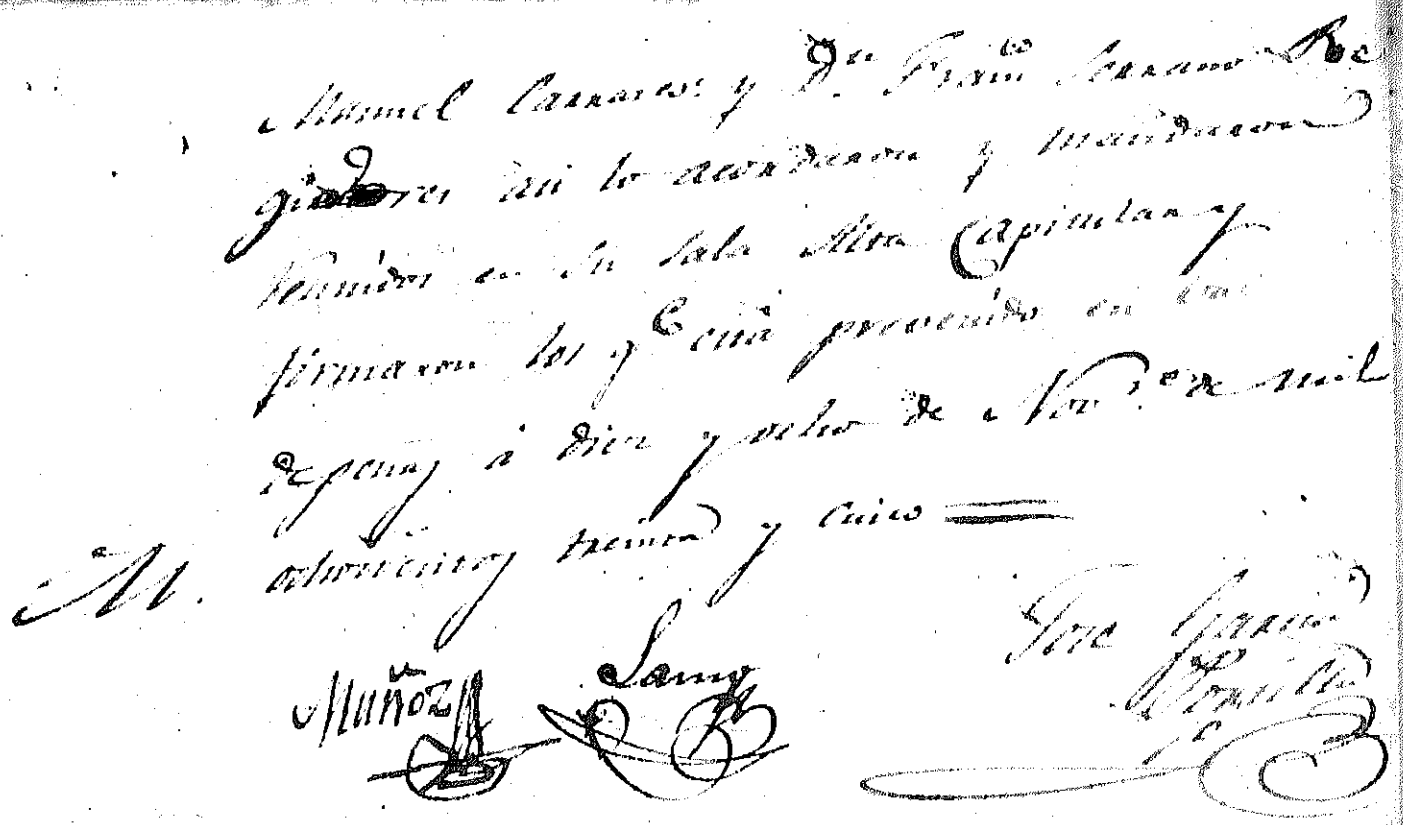 Manuel y Dn Franco Serrano Re
gidores asi lo acordaron y mandaron
reunidos en su Sala Alta Capitular y
firmaron los qe está prevenido en
de penas á diez y ocho de Novre de mil
ochocientos treinta y cinco
M.
Muñoz
Jose Garcia